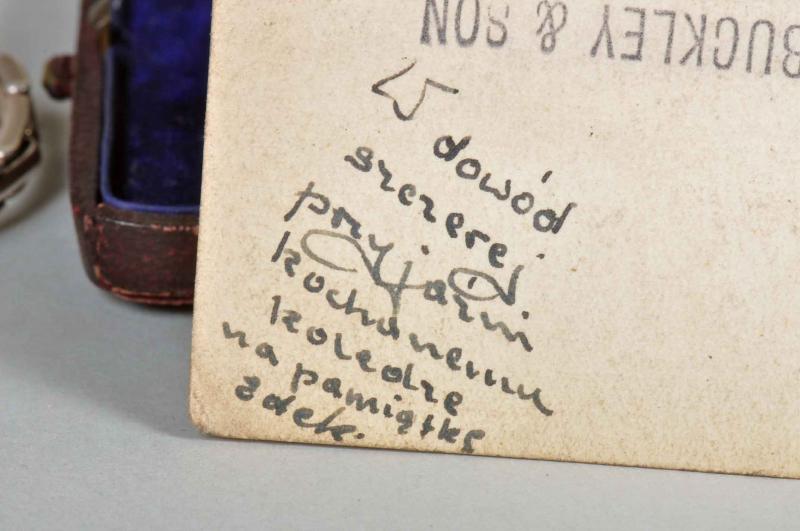 BUCKLEY & SON
W dowód
szczerej
przyjaźni
kochanemu
koledze
na pamiątkę